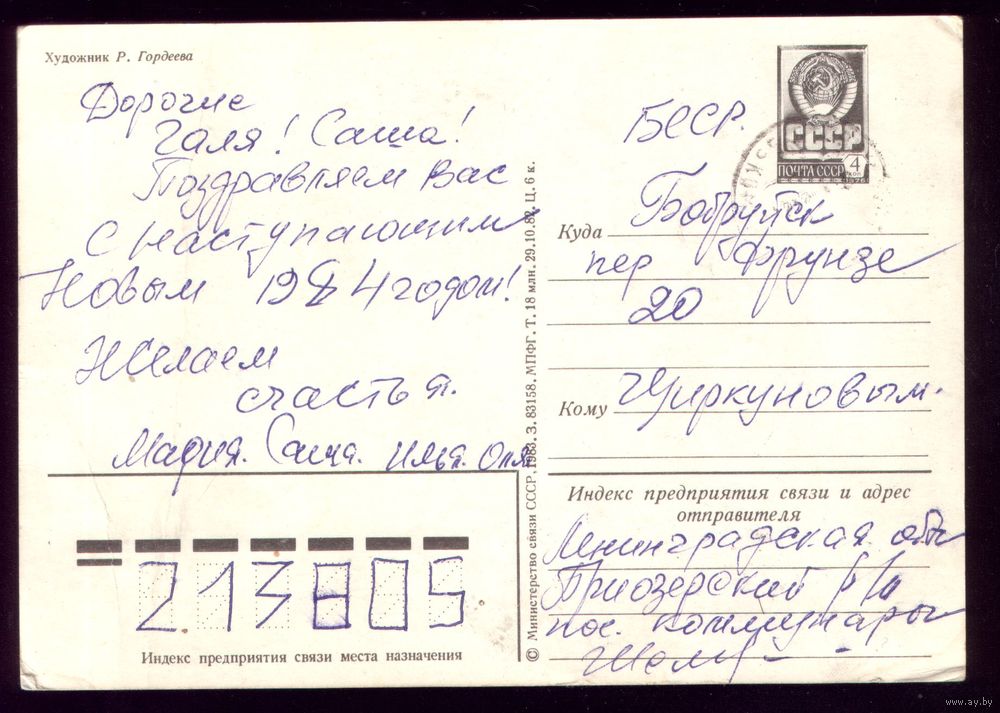 Художник Р. Гордеева
Дорогие
Галя! Саша!
Поздравляем Вас
с наступающим
Новым 1984 годом!
Желаем
счастья.
Мария. Саша. Илья. Оля
213805
Индекс предприятия связи места назначения
© Министерство связи СССР, 1983. З. 83158. МПФГ. Т. 18 млн. 29.10.82. Ц. 6 к.
СССР
ПОЧТА СССР
4
коп
1976
БССР.
Куда Бобруйск
пер Фрунзе
20
Кому Циркуновым.
Индекс предприятия связи и адрес
отправителя
Ленинградская обл
Приозерский р/н
пос. Коммунары
www.ay.by